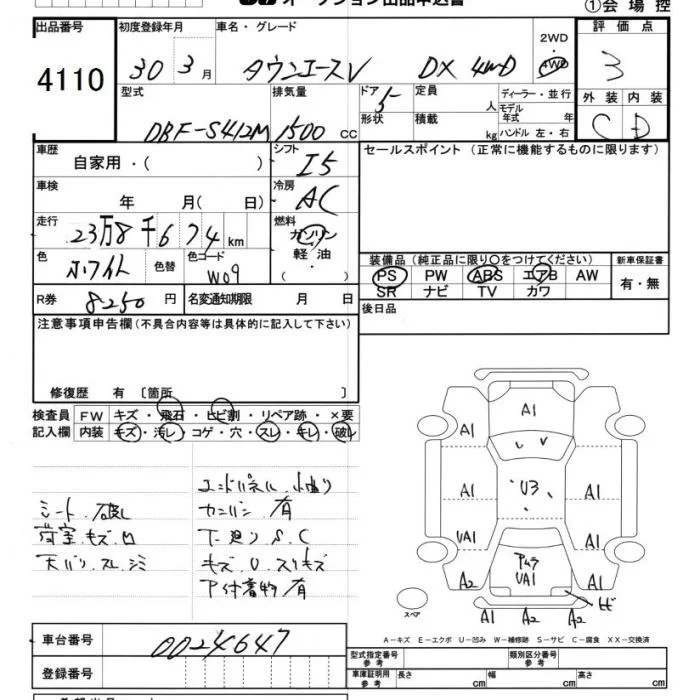 オークション出品申込書
①会場控
出品番号 初度登録年月 車名・グレード 2WD 評価点
4110 30 3月 タウンエースV DX 4WD 4WD 3
型式 排気量 ドア 定員 ディーラー・並行 外装 内装
DBF-S412M 1500 cc 5 人 モデル年式 年 C D
形状 積載 kg ハンドル 左・右
車歴 シフト セールスポイント（正常に機能するものに限ります）
自家用・（ ） I5
車検 冷房
年 月（ 日） AC
走行 燃料
23万8千674km ガソリン
色 色替 色コード 軽油 装備品（純正品に限り〇をつけてください） 新車保証書
ホワイト W09 ・（ ） PS PW ABS エアB AW 有・無
R券 8250円 名変通知期限 月 日 SR ナビ TV カワ
注意事項申告欄（不具合内容等は具体的に記入して下さい） 後日品
修復歴 有 〔箇所 〕
検査員 FW キズ・飛石・ヒビ割・リペア跡・×要
記入欄 内装 キズ・汚レ・コゲ・穴・スレ・キレ・破レ
シート.破レ カニバン.有
荷室.キズ.凹 下廻りS.C
天バリ.スレ.シミ キズ.U.スリキズ
P付着物/有
A1
A1
U3
A1 A1
UA1 A1
アムラ
UA1
A2 A1
ヒビ
スペア
A1 A2 A2
A－キズ E－エクボ U－凹み W－補修跡 S－サビ C－腐食 XX－交換済
車台番号 0024647
登録番号
型式指定番号 参考 類別区分番号 参考
車庫証明用 参考 長さ cm 幅 cm 高さ cm